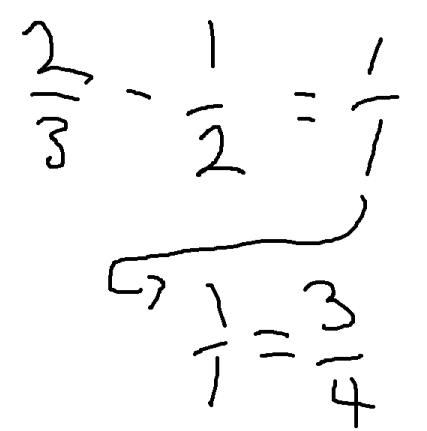 2/3 - 1/2 = 1/1
1/1 = 3/4